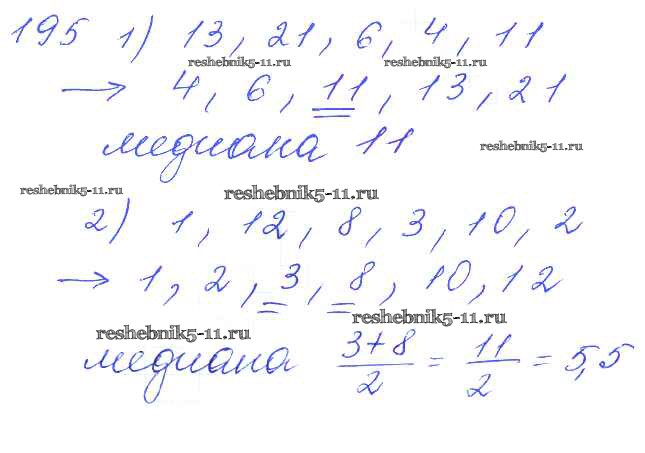 195 1) 13, 21, 6, 4, 11
reshebnik5-11.ru reshebnik5-11.ru
→ 4, 6, 11, 13, 21
медиана 11
reshebnik5-11.ru
reshebnik5-11.ru
reshebnik5-11.ru
2) 1, 12, 8, 3, 10, 2
→ 1, 2, 3, 8, 10, 12
reshebnik5-11.ru
reshebnik5-11.ru
медиана (3+8)/2 = 11/2 = 5,5